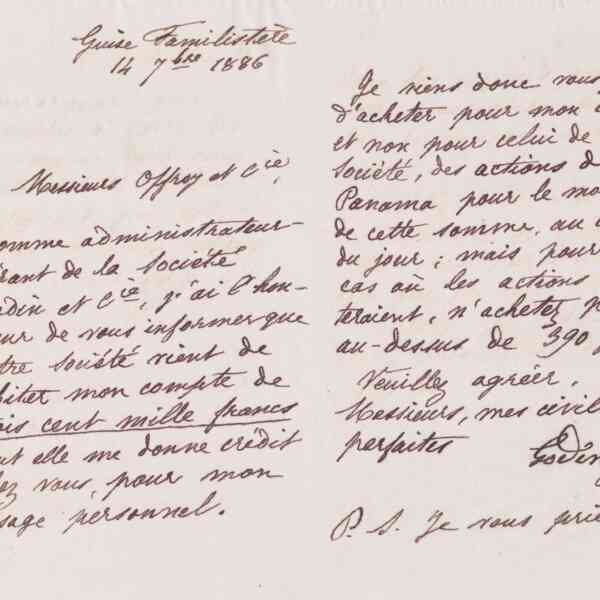 Guise Familistère
14 7bre 1886
Messieurs Offroy et Cie,
omme administrateur-
érant de la Société
din et Cie, j'ai l'hon-
eur de vous informer que
tre Société vient de
biter mon compte de
ois cent mille francs
nt elle me donne crédit
ez vous, pour mon
sage personnel.
Je viens donc vous
d'acheter pour mon
et non pour celui de
Société, des actions d
Panama pour le mo
de cette somme, au
du jour; mais pour
cas où les actions
teraient, n'achetez p
au-dessus de 390 f
Veuillez agréer,
Messieurs, mes civil
parfaites
Godin
P. S. Je vous prie